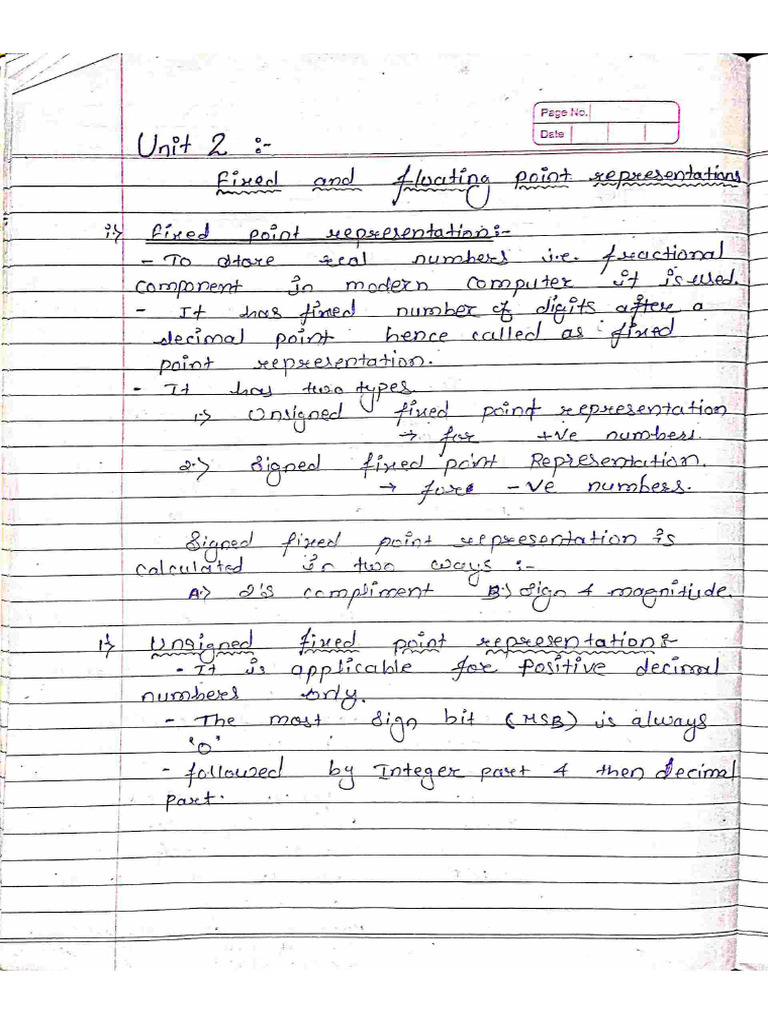 Page No.
Date
Unit 2 :-
Fixed and floating point representations
i:-> Fixed point representation:-
- To store real numbers i.e. fractional
component in modern computer it is used.
- It has fixed number of digits after a
decimal point hence called as fixed
point representation.
- It has two types
1:-> Unsigned fixed point representation
→ for +ve numbers.
2:-> Signed fixed point Representation.
→ for -ve numbers.
Signed fixed point representation is
calculated in two ways :-
A:-> 2's compliment B:-> Sign & magnitude.
1:-> Unsigned fixed point representation:-
- It is applicable for positive decimal
numbers only.
- The most sign bit (MSB) is always
'0'
- followed by Integer part & then decimal
part.